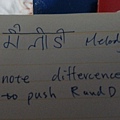 मै लीडी Melody
note differcence
to push R and D